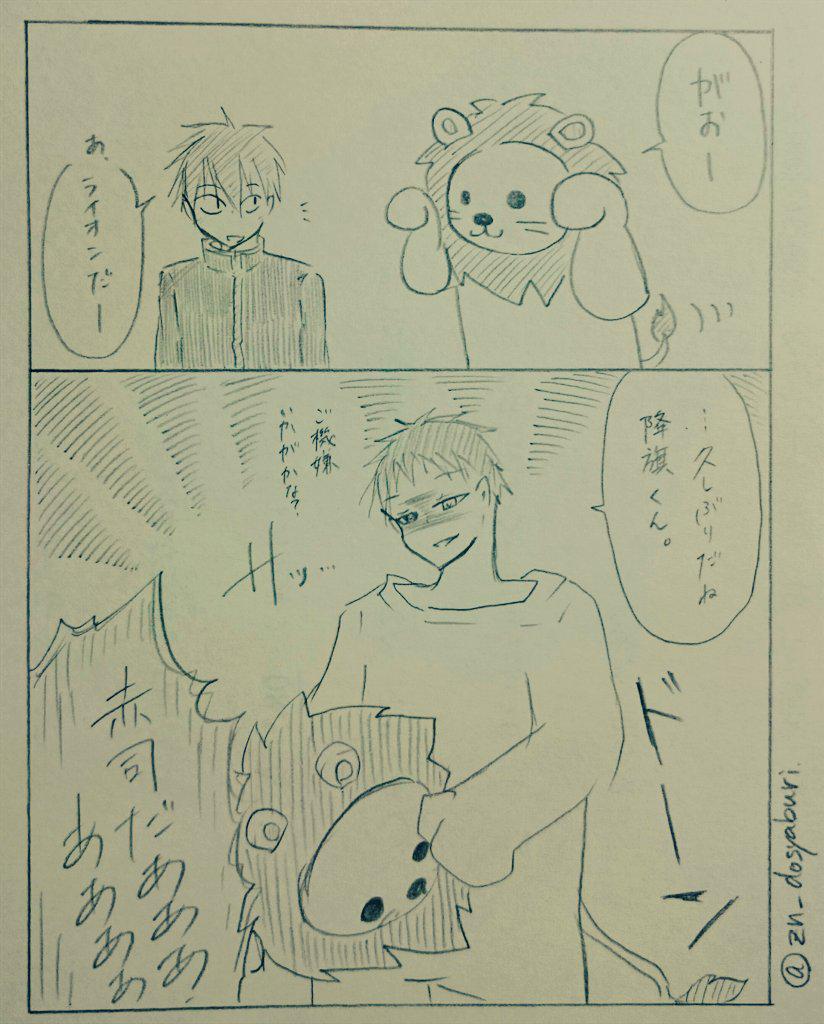 がおー
あ、
ライオンだー
…久しぶりだね
降旗くん。
ご機嫌
いかがかな?
サッ…
ドーン
赤司だああああ!
ああああぁ
@zn_dosyaburi